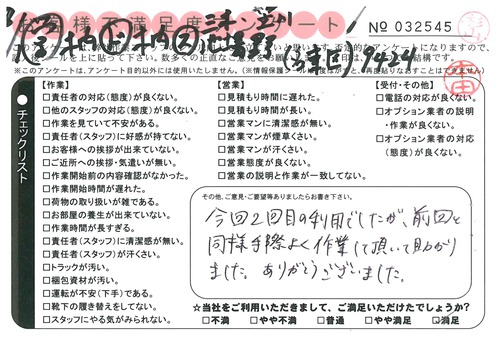 お客様不満足度アンケート
№ 032545
※このアンケートは、アンケート目的以外には使用いたしません。
チェックリスト
【作業】
□責任者の対応(態度)が良くない。
□他のスタッフの対応(態度)が良くない。
□作業を見ていて不安がある。
□責任者(スタッフ)に好感が持てない。
□お客様への挨拶が出来ていない。
□ご近所への挨拶・気遣いが無い。
□作業開始前の内容確認がなかった。
□作業開始時間が遅れた。
□荷物の取り扱いが雑である。
□お部屋の養生が出来ていない。
□作業時間が長すぎる。
□責任者(スタッフ)に清潔感が無い。
□責任者(スタッフ)が汗くさい。
□トラックが汚い。
□梱包資材が汚い。
□運転が不安(下手)である。
□靴下の履き替えをしてない。
□スタッフにやる気がみられない。
【営業】
□見積もり時間に遅れた。
□見積もり時間が長い。
□営業マンに清潔感が無い。
□営業マンが煙草くさい。
□営業マンが汗くさい。
□営業態度が良くない。
□営業の説明と作業が一致してない。
【受付・その他】
□電話の対応が良くない。
□オプション業者の説明
・作業が良くない。
□オプション業者の対応
(態度)が良くない。
その他、ご意見・ご要望等ありましたらお書き下さい。
今回2回目の利用でしたが、前回と
同様手際よく作業して頂いて助かり
ました。ありがとうございました。
☆当社をご利用いただきまして、ご満足いただけたでしょうか?
□不満 □やや不満 □普通 □やや満足 ☑満足